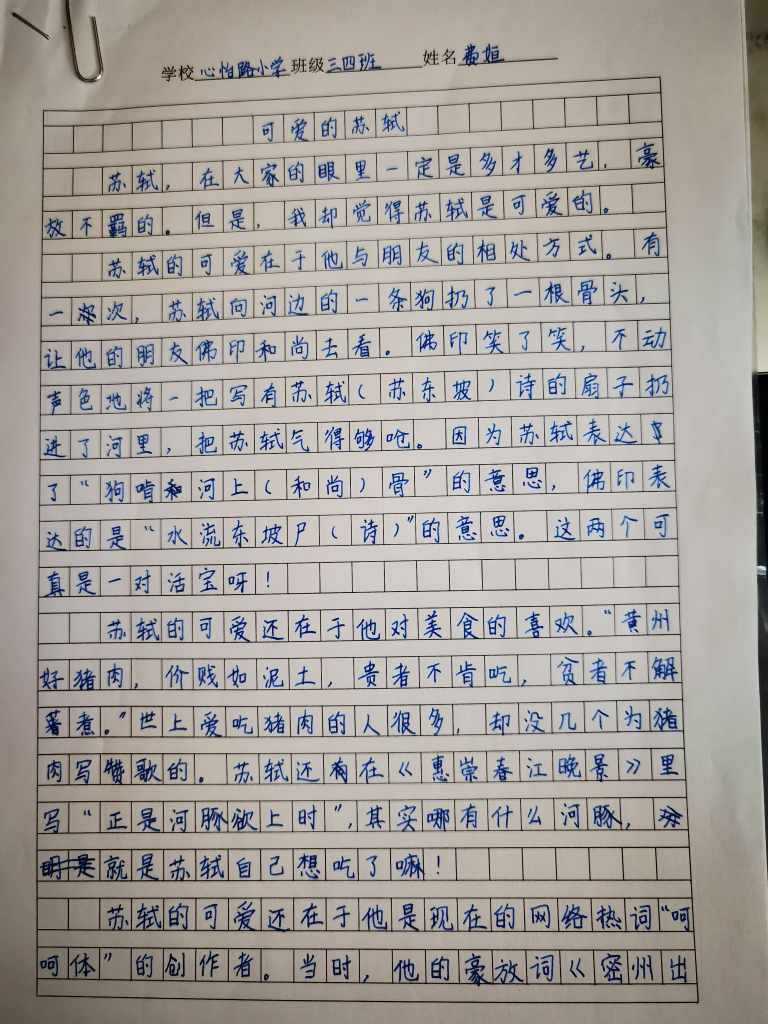 学校 心怡路小学 班级 三四班 姓名 费姮
可爱的苏轼
苏轼，在大家的眼里一定是多才多艺，豪
放不羁的。但是，我却觉得苏轼是可爱的。
苏轼的可爱在于他与朋友的相处方式。有
一次，苏轼向河边的一条狗扔了一根骨头，
让他的朋友佛印和尚去看。佛印笑了笑，不动
声色地将一把写有苏轼（苏东坡）诗的扇子扔
进了河里，把苏轼气得够呛。因为苏轼表达
了“狗啃河上（和尚）骨”的意思，佛印表
达的是“水流东坡尸（诗）”的意思。这两个可
真是一对活宝呀！
苏轼的可爱还在于他对美食的喜欢。“黄州
好猪肉，价贱如泥土，贵者不肯吃，贫者不解
煮。”世上爱吃猪肉的人很多，却没几个为猪
肉写赞歌的。苏轼还在《惠崇春江晚景》里
写“正是河豚欲上时”，其实哪有什么河豚，
就是苏轼自己想吃了嘛！
苏轼的可爱还在于他是现在的网络热词“呵
呵体”的创作者。当时，他的豪放词《密州出